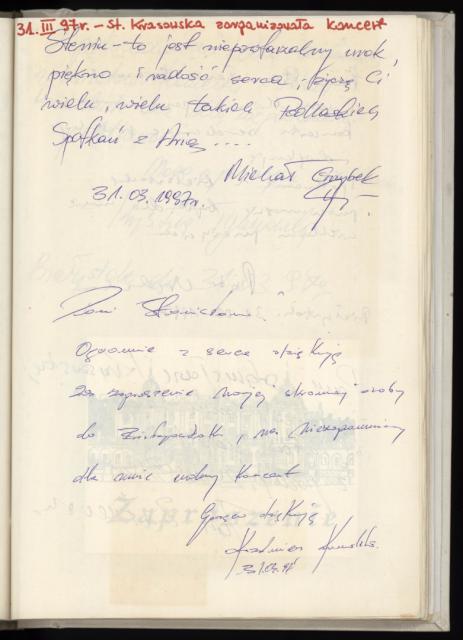 31.III 97r. - St. Krasowska zorganizowała koncert
Steniu - to jest niepowtarzalny urok,
piękno i radość serca, życzę Ci
wielu, wielu takich Podlaskich
Spotkań z Arią ....
Michał Grzybek
31.03.1997r.
Pani Stanisławo!
Ogromnie z serca dziękuję
za zaproszenie mojej skromnej osoby
do, na niezapomniany
dla mnie wolny koncert
Gorąco dziękuję
Kazimierz
31.03.97
Zaproszenie